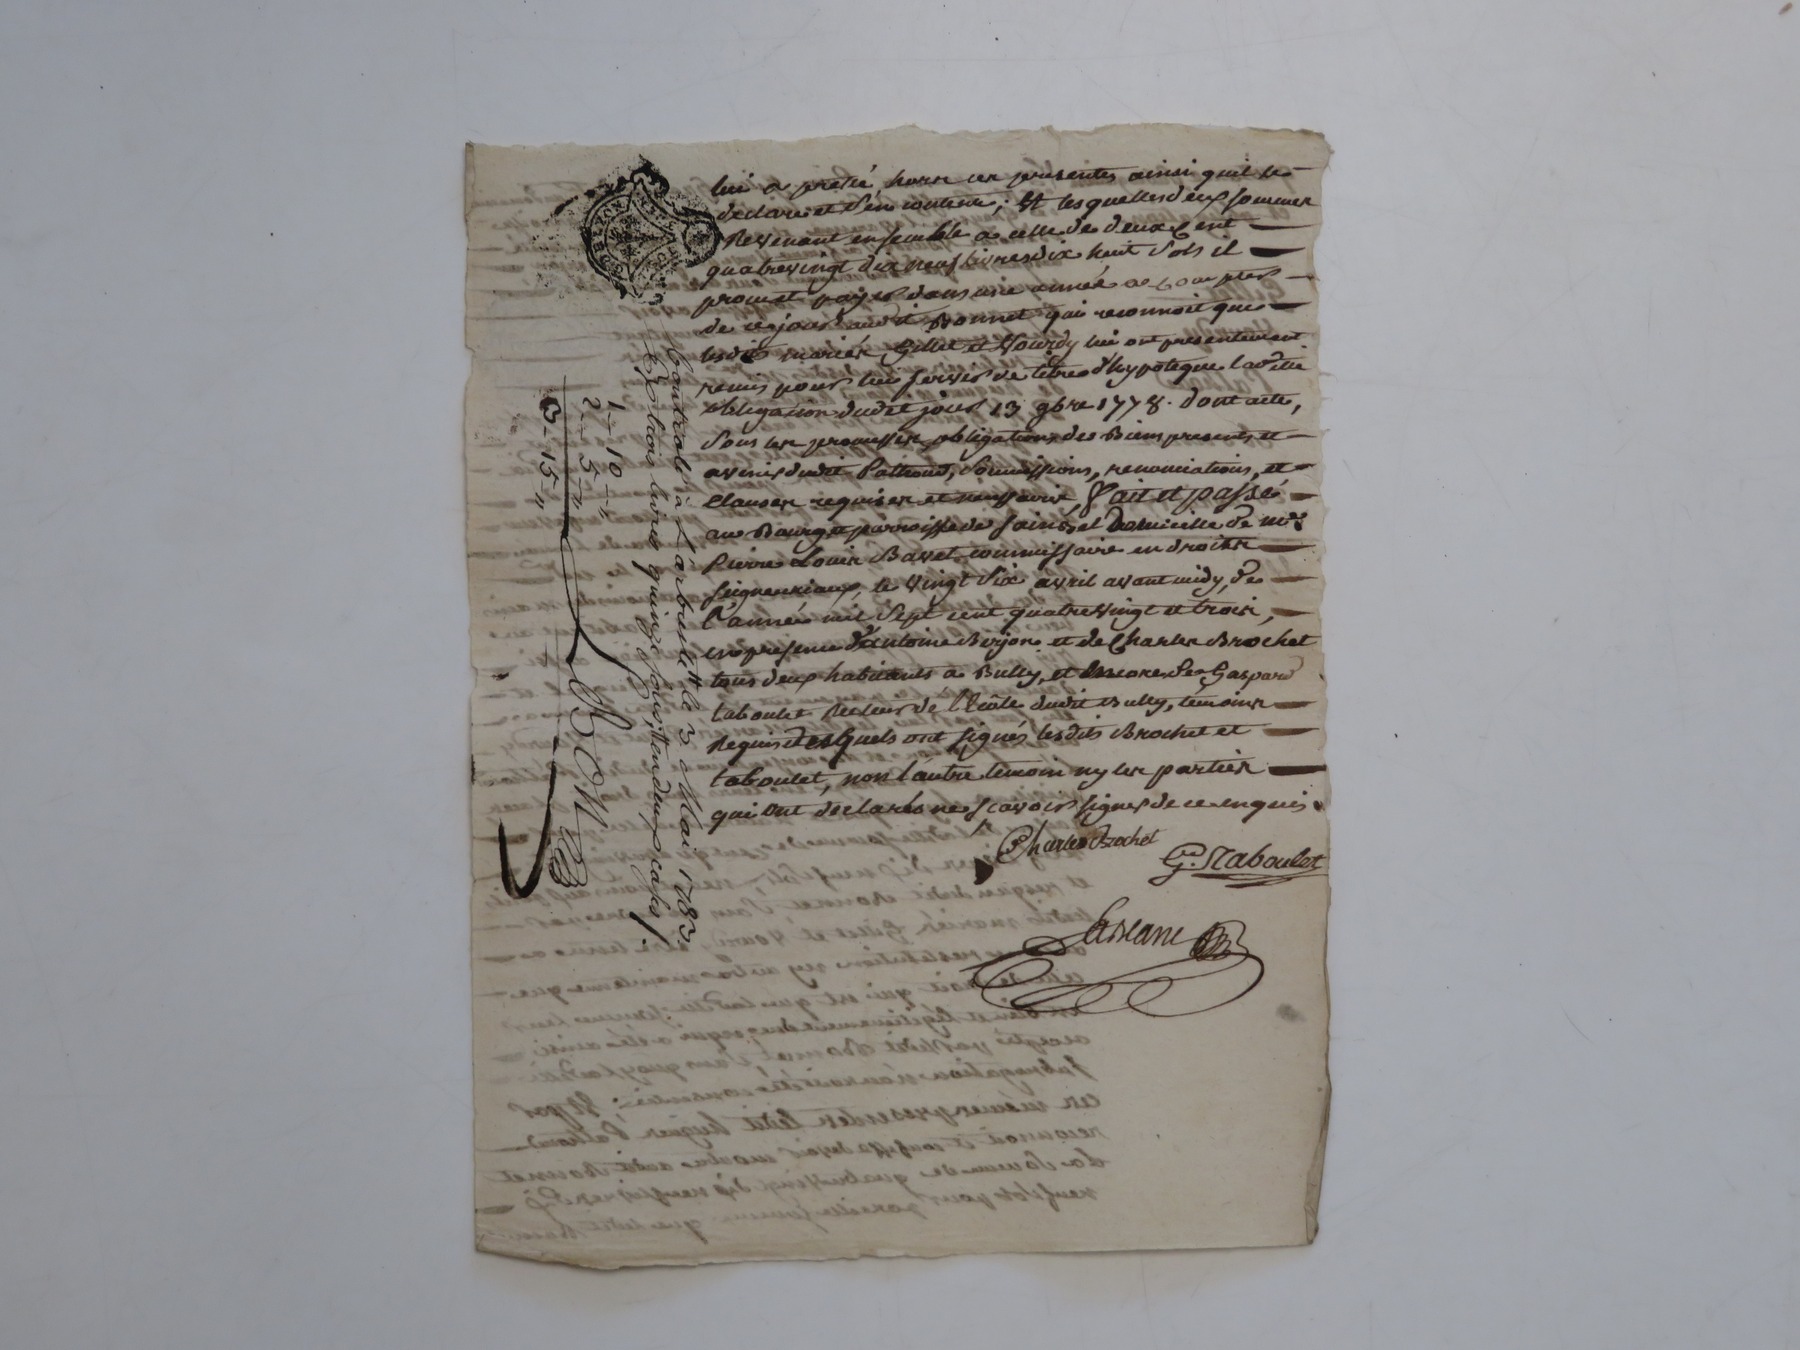 lui a preté, hors ces presentes ainsi quil le
declare et s'en contente; Et lesquelles deux sommes
Revenant ensemble a celle de deux Cent
quatrevingt dix neuf livres dix huit sols il
promet payer dans une année a Compter
de ce jour audit Bonnet qui reconnoit que
lesdits mariés Gillet et Gourdy lui ont presentement
remis pour lui servir de titre d'hypoteque ladite
obligation dudit jour 13 9bre 1778. dont acte,
sous les promesses obligations des Biens presents et
avenir dudit Patroud, soumissions, renonciations, et
Clauses requises et necessaires, Fait et passé
au Bourg et parroisse de Sain-bel domicille de mre
Pierre Louis Bavet commissaire en droits
seigneuriaux, le vingt six avril avant midy, de
l'année mil sept cent quatre vingt et trois,
en presence d'Antoine Berjon et de Charles Brochet
tous deux habitants a Bully, et encore de Gaspard
taboulet Recteur de l'Ecôle dudit Bully, témoins
Requis desquels ont signés lesdits Brochet et
taboulet, non l'autre temoin ny les parties
qui ont declarés ne scavoir signer de ce enquis
Charles Brochet
G. Taboulet
Controlé à Larbresle le 3 Mai 1783.
trois livres quinze sous, attendu cases
1 - 10 - "
2 - 5 - "
3 - 15 - "